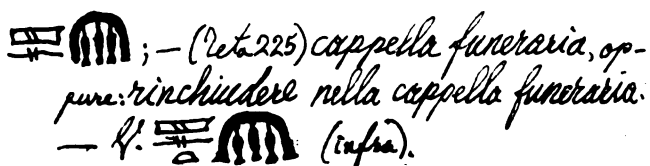 ; — (Teta 225) cappella funeraria, op-
pure: rinchiudere nella cappella funeraria.
— V. (infra).